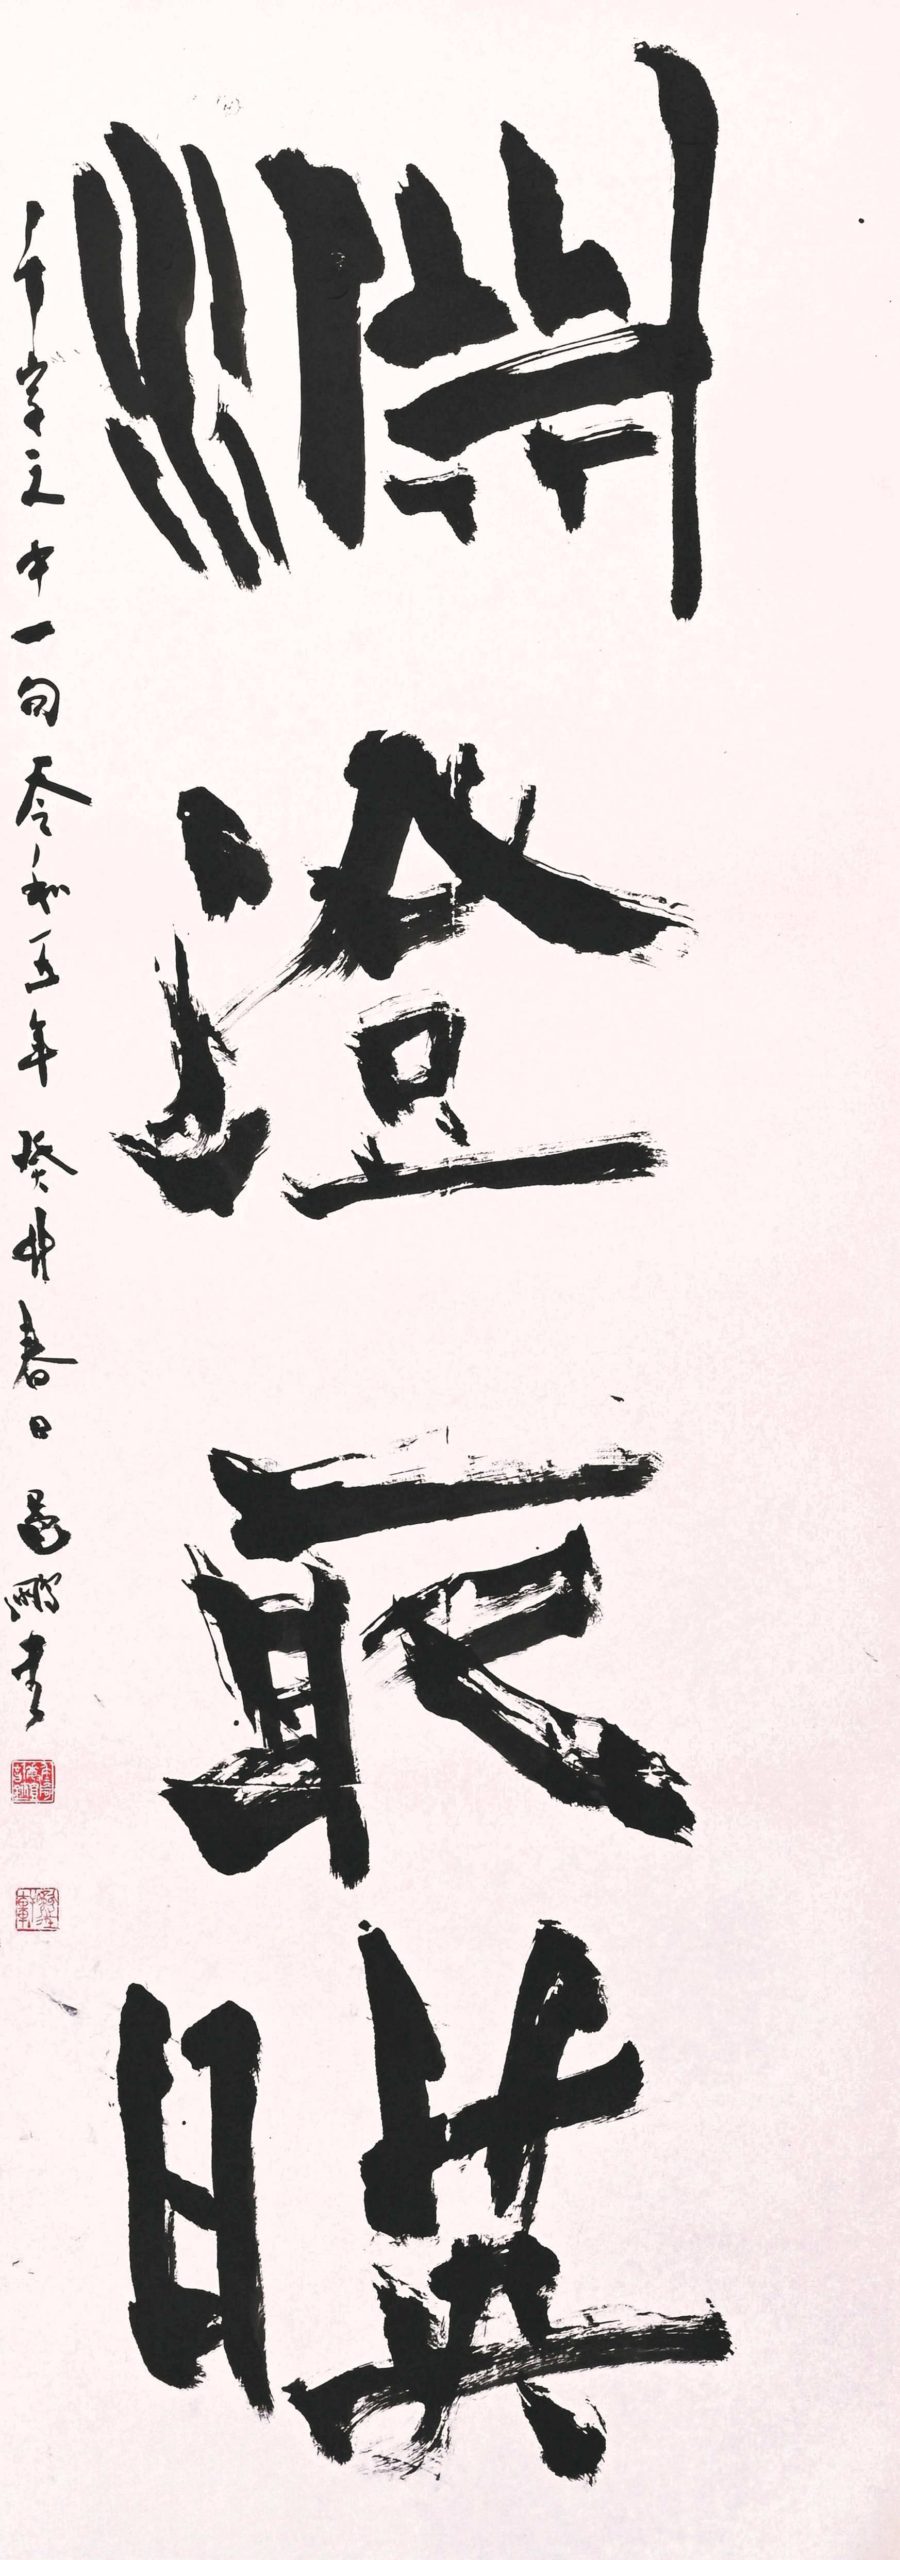 淵澄取暎
千字文中一句 令和五年癸卯春日 昌鵬書